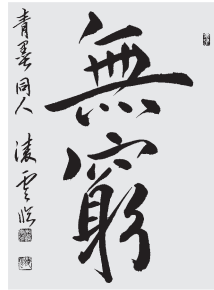 無窮
青墨同人
凌雲臨